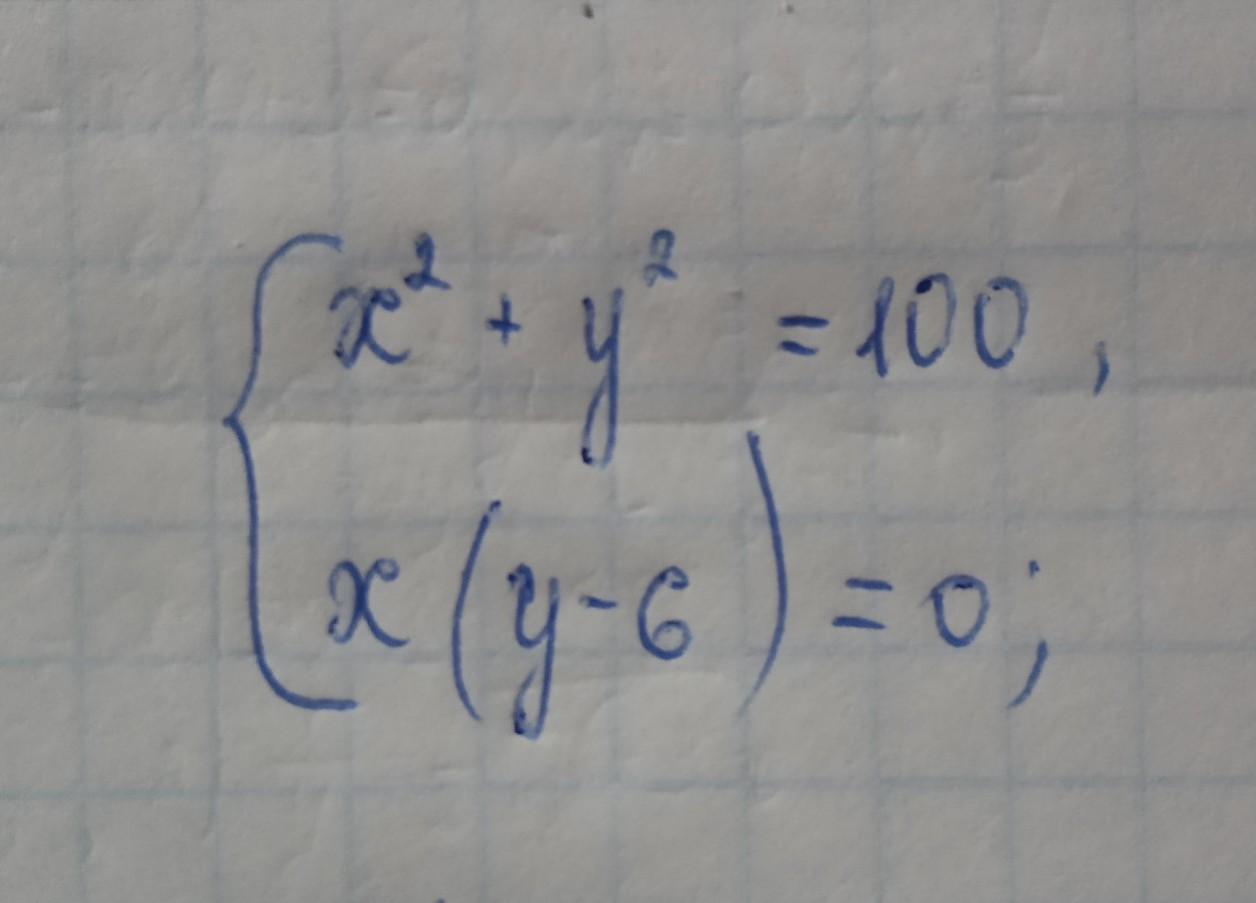 x² + y² = 100,
x(y-6) = 0;